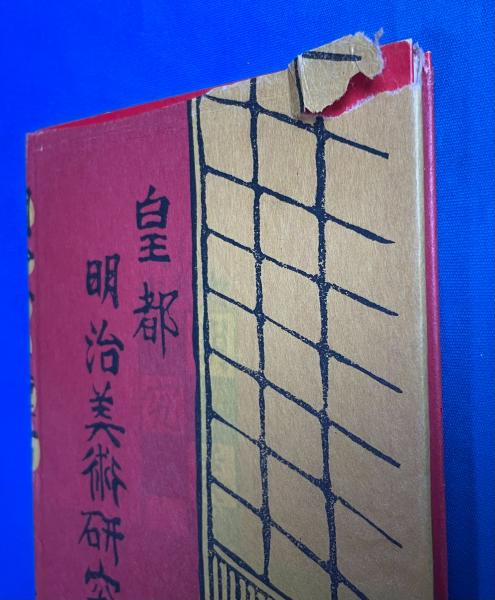 皇都
明治美術研究